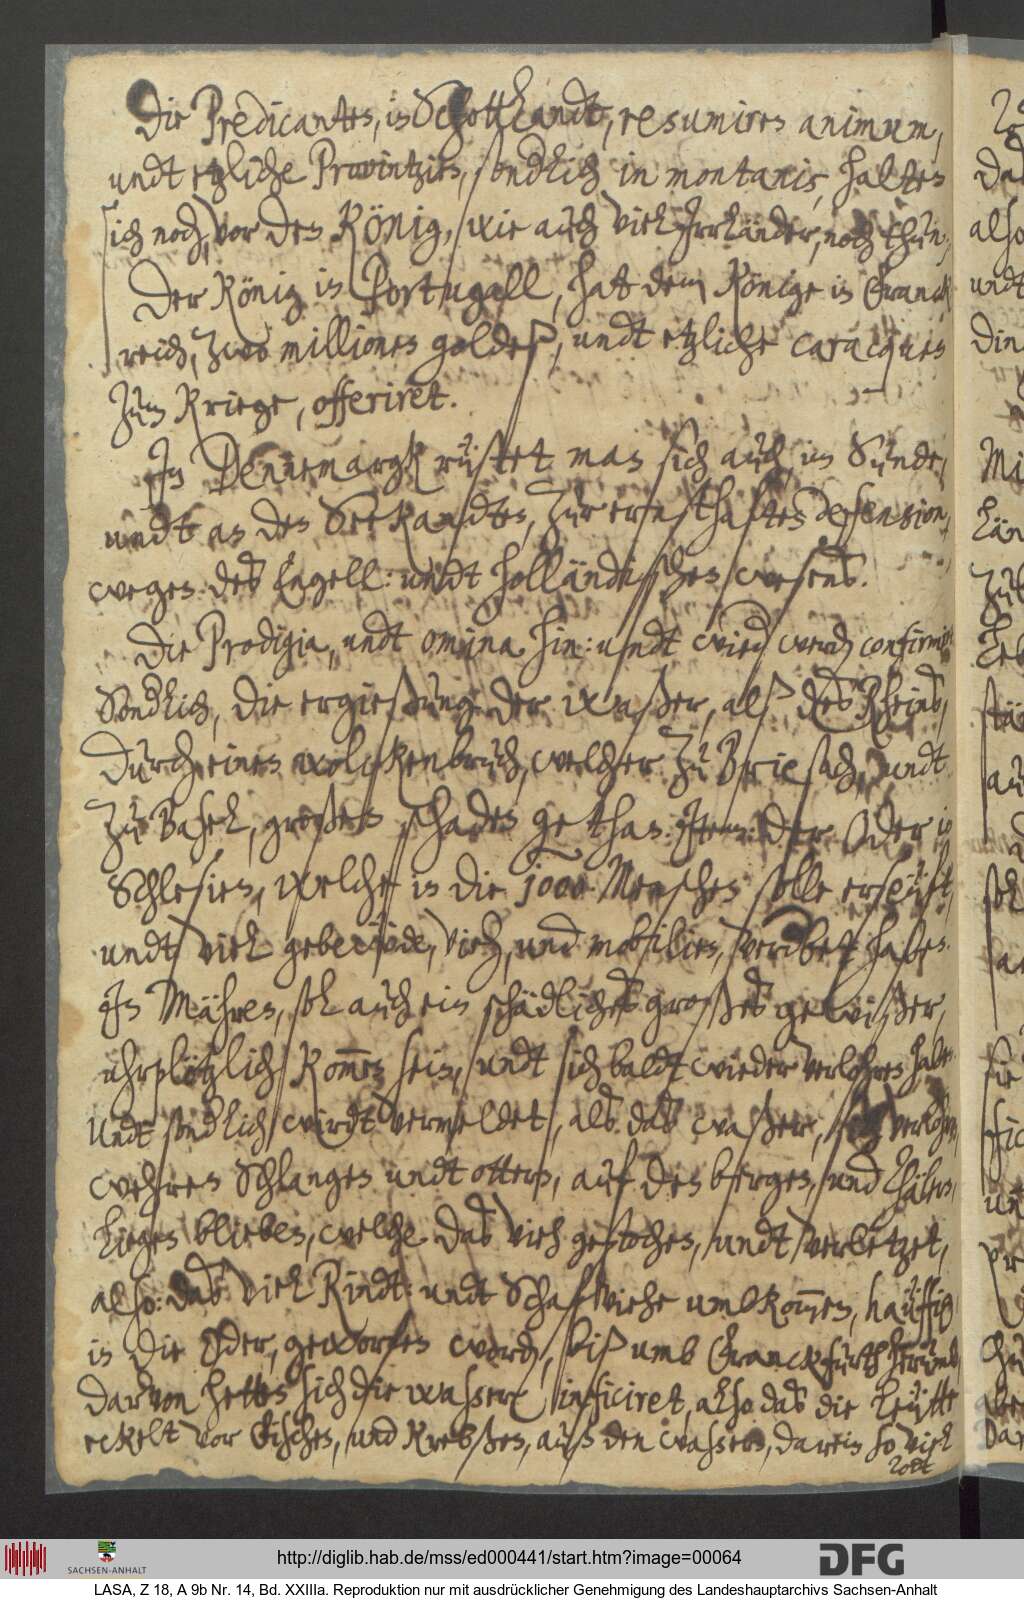 Die Predicanten, in Schottlandt, resumiren animum,
undt etzliche Provintzien, sonderlich in montanis, halten
sich noch, vor den König, wie auch viel Irrländer, noch thun.
Der König in Portugall, hat dem Könige in Franck
reich, zwo millionen goldeß, undt etzliche caracques
zum Kriege, offeriret.
In Dennemargk rüstet man sich auch, im Sunde,
undt an den Seekandten, zur ernsthaften defension,
wegen des Engell: undt Holländischen wesens.
Die Prodigia, undt omina hin: undt wied werden confirmirt
Sonderlich, die ergießung der waßer, alß des Rheins,
durch einen wolckenbruch, welcher zu Briesach, undt
zu Basel, großen schaden gethan. Item: der Oder in
Schlesien, welche in die 1000 Menschen solle erseuft,
undt viel gebeude, Vieh, und mobilien, verderbet haben.
In Mähren, sol auch ein schädliches großes gewäßer,
uhrplötzlich kommen sein, undt sich baldt wieder verlohren haben
Undt sonderlich wirdt vermeldet, als das waßer, sich verlohren,
wehren Schlangen undt ottern, auf den bergen, und thälern,
liegen blieben, welche das Vieh gestochen, undt verletzet,
also: das viel Rindt: undt Schafviehe umbkommen, häuffig
in die Oder, geworfen worden, biß umb Franckfurth herumb,
Darvon hetten sich die wasser inficiret, also das die Leütte
eckelt vor Fischen, und Krebßen, auß den wassern, darein so viel
Todt
http://diglib.hab.de/mss/ed000441/start.htm?image=00064
SACHSEN-ANHALT
DFG
LASA, Z 18, A 9b Nr. 14, Bd. XXIIIa. Reproduktion nur mit ausdrücklicher Genehmigung des Landeshauptarchivs Sachsen-Anhalt